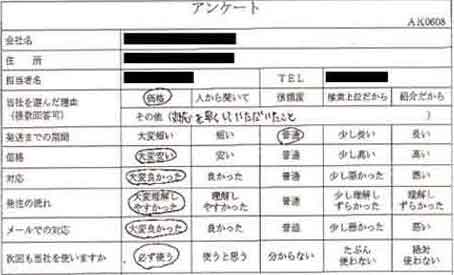 アンケート
AK0608
会社名
住 所
担当者名 TEL
当社を選んだ理由 価格 人から聞いて 信頼度 検索上位だから 紹介だから
(複数回答可) その他 ( 対応を早くしていただいたこと )
発送までの期間 大変短い 短い 普通 少し長い 長い
価格 大変安い 安い 普通 少し高い 高い
対応 大変良かった 良かった 普通 少し悪かった 悪い
発注の流れ 大変理解しやすかった 理解しやすかった 普通 少し理解しずらかった 理解しずらかった
メールでの対応 大変良かった 良かった 普通 少し悪かった 悪い
次回も当社を使いますか 必ず使う 使うと思う 分からない たぶん使わない 絶対使わない